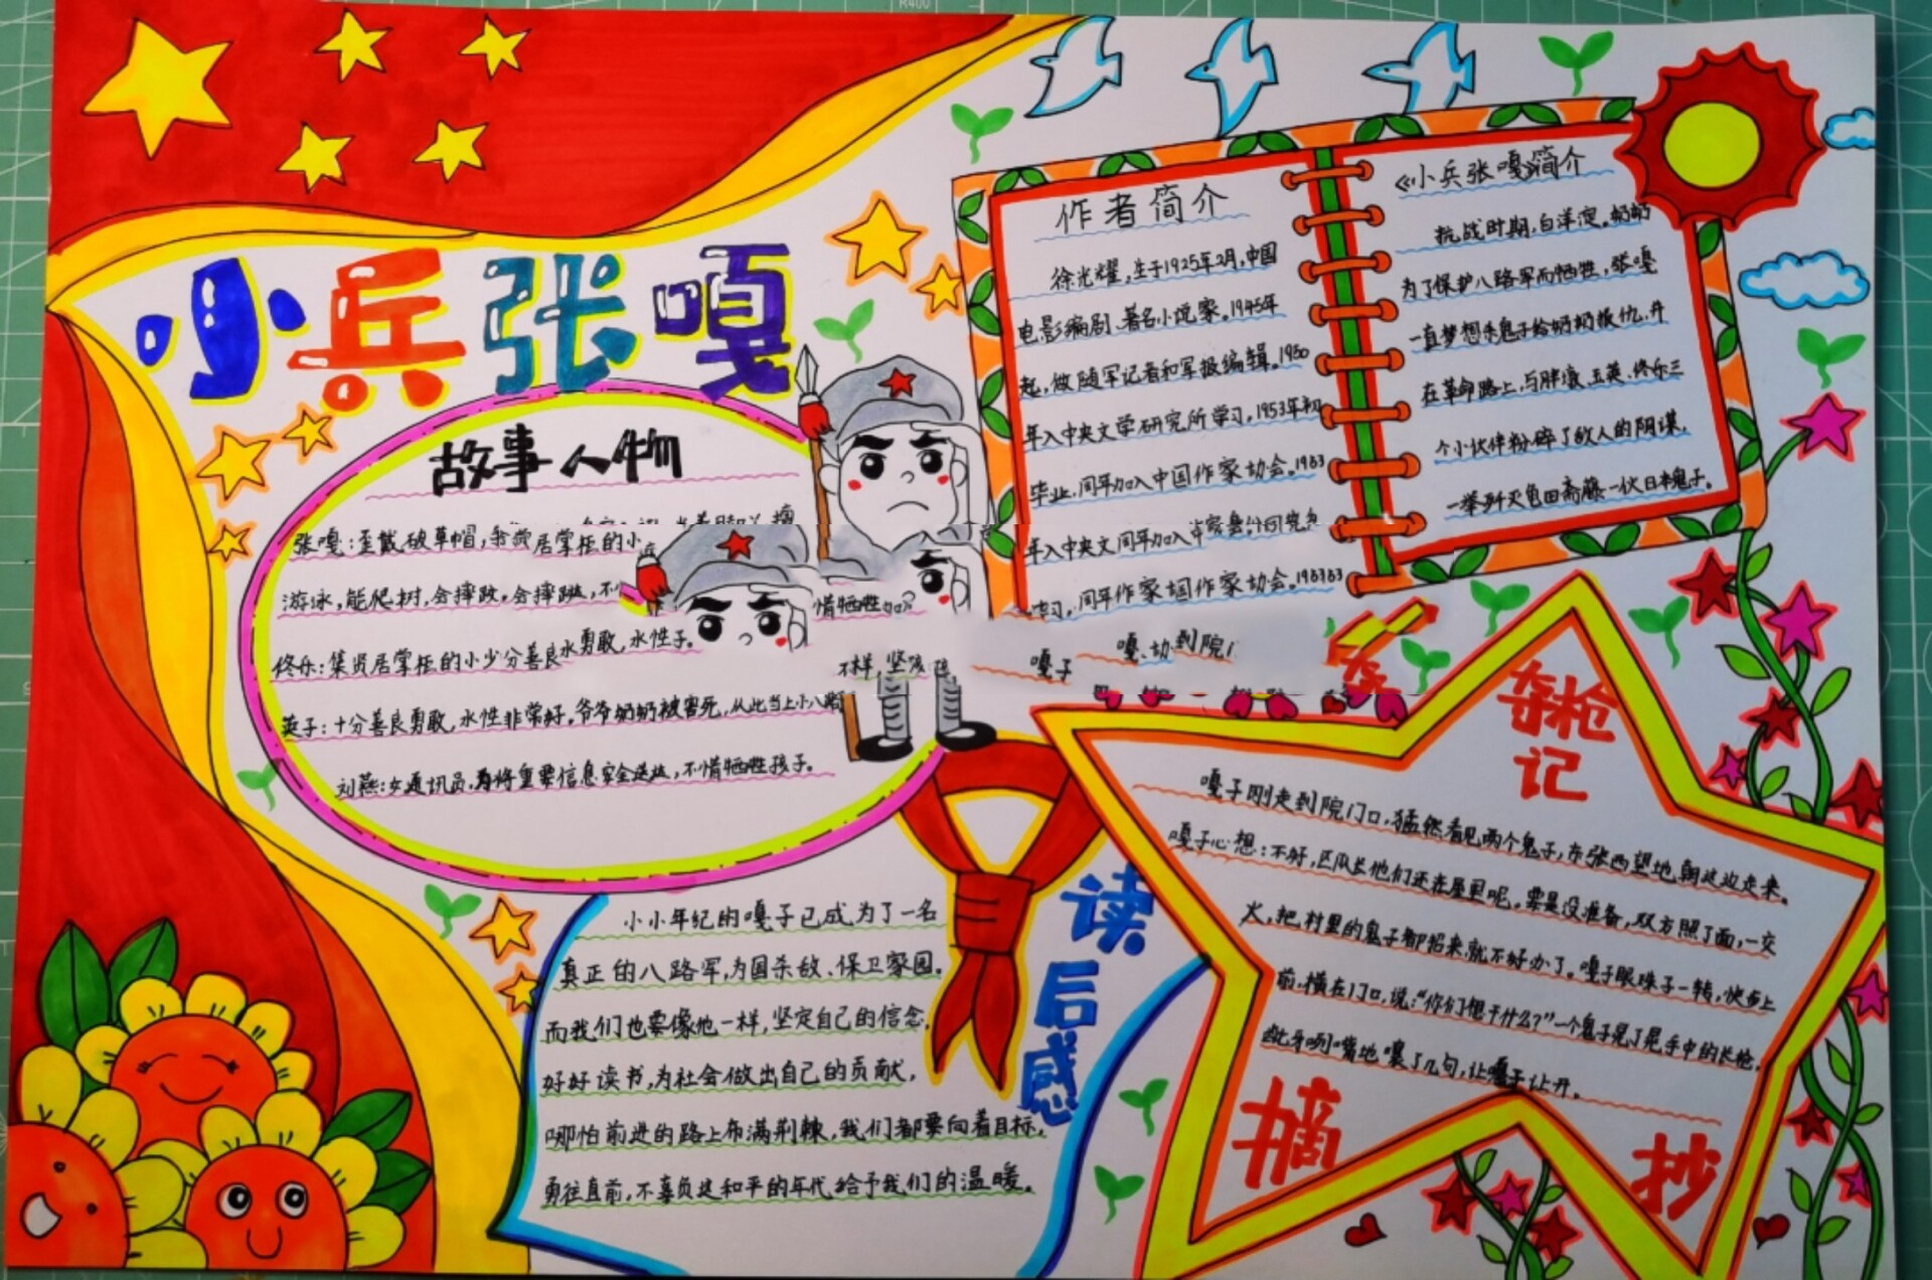 小兵张嘎
故事人物
张嘎:歪戴破草帽,
居掌柜的小
游泳,能爬树,会摔跤,会摔跳,不
惜牺牲
佟乐:集贤居掌柜的小少分善良水勇敢,水性子。
不样,坚孩
英子:十分善良勇敢,水性非常好。爷爷奶奶被害死,从此当上小八路
刘燕:女通讯员,为将重要信息安全送达,不惜牺牲孩子。
作者简介
徐光耀,生于1925年2月,中国
电影编剧、著名小说家。1945年
起,做随军记者和军报编辑。1950
年入中央文学研究所学习。1953年初
毕业,同年加入中国作家协会。1983
年入中央文同年加入
同年作家
国作家协会。198383
嘎子
到院
《小兵张嘎》简介
抗战时期,白洋淀。奶奶
为了保护八路军而牺牲,张嘎
一直梦想杀鬼子给奶奶报仇,并
在革命路上,与胖墩、玉英、佟乐三
个小伙伴粉碎了敌人的阴谋,
一举歼灭龟田斋藤一伙日本鬼子。
读后感
小小年纪的嘎子已成为了一名
真正的八路军,为国杀敌、保卫家园。
而我们也要像他一样,坚定自己的信念,
好好读书,为社会做出自己的贡献,
哪怕前进的路上布满荆棘,我们都要向着目标,
勇往直前,不辜负这和平的年代给予我们的温暖。
夺枪记
嘎子刚走到院门口,猛然看见两个鬼子,东张西望地朝这边走来。
嘎子心想:不好,区队长他们还在屋里呢。要是没准备,双方照了面,一交
火,把村里的鬼子都招来,就不好办了。嘎子眼珠子一转,快步上
前,横在门口,说:“你们想干什么?”一个鬼子晃了晃手中的长枪,
龇牙咧嘴地嚷了几句,让嘎子让开。
摘抄